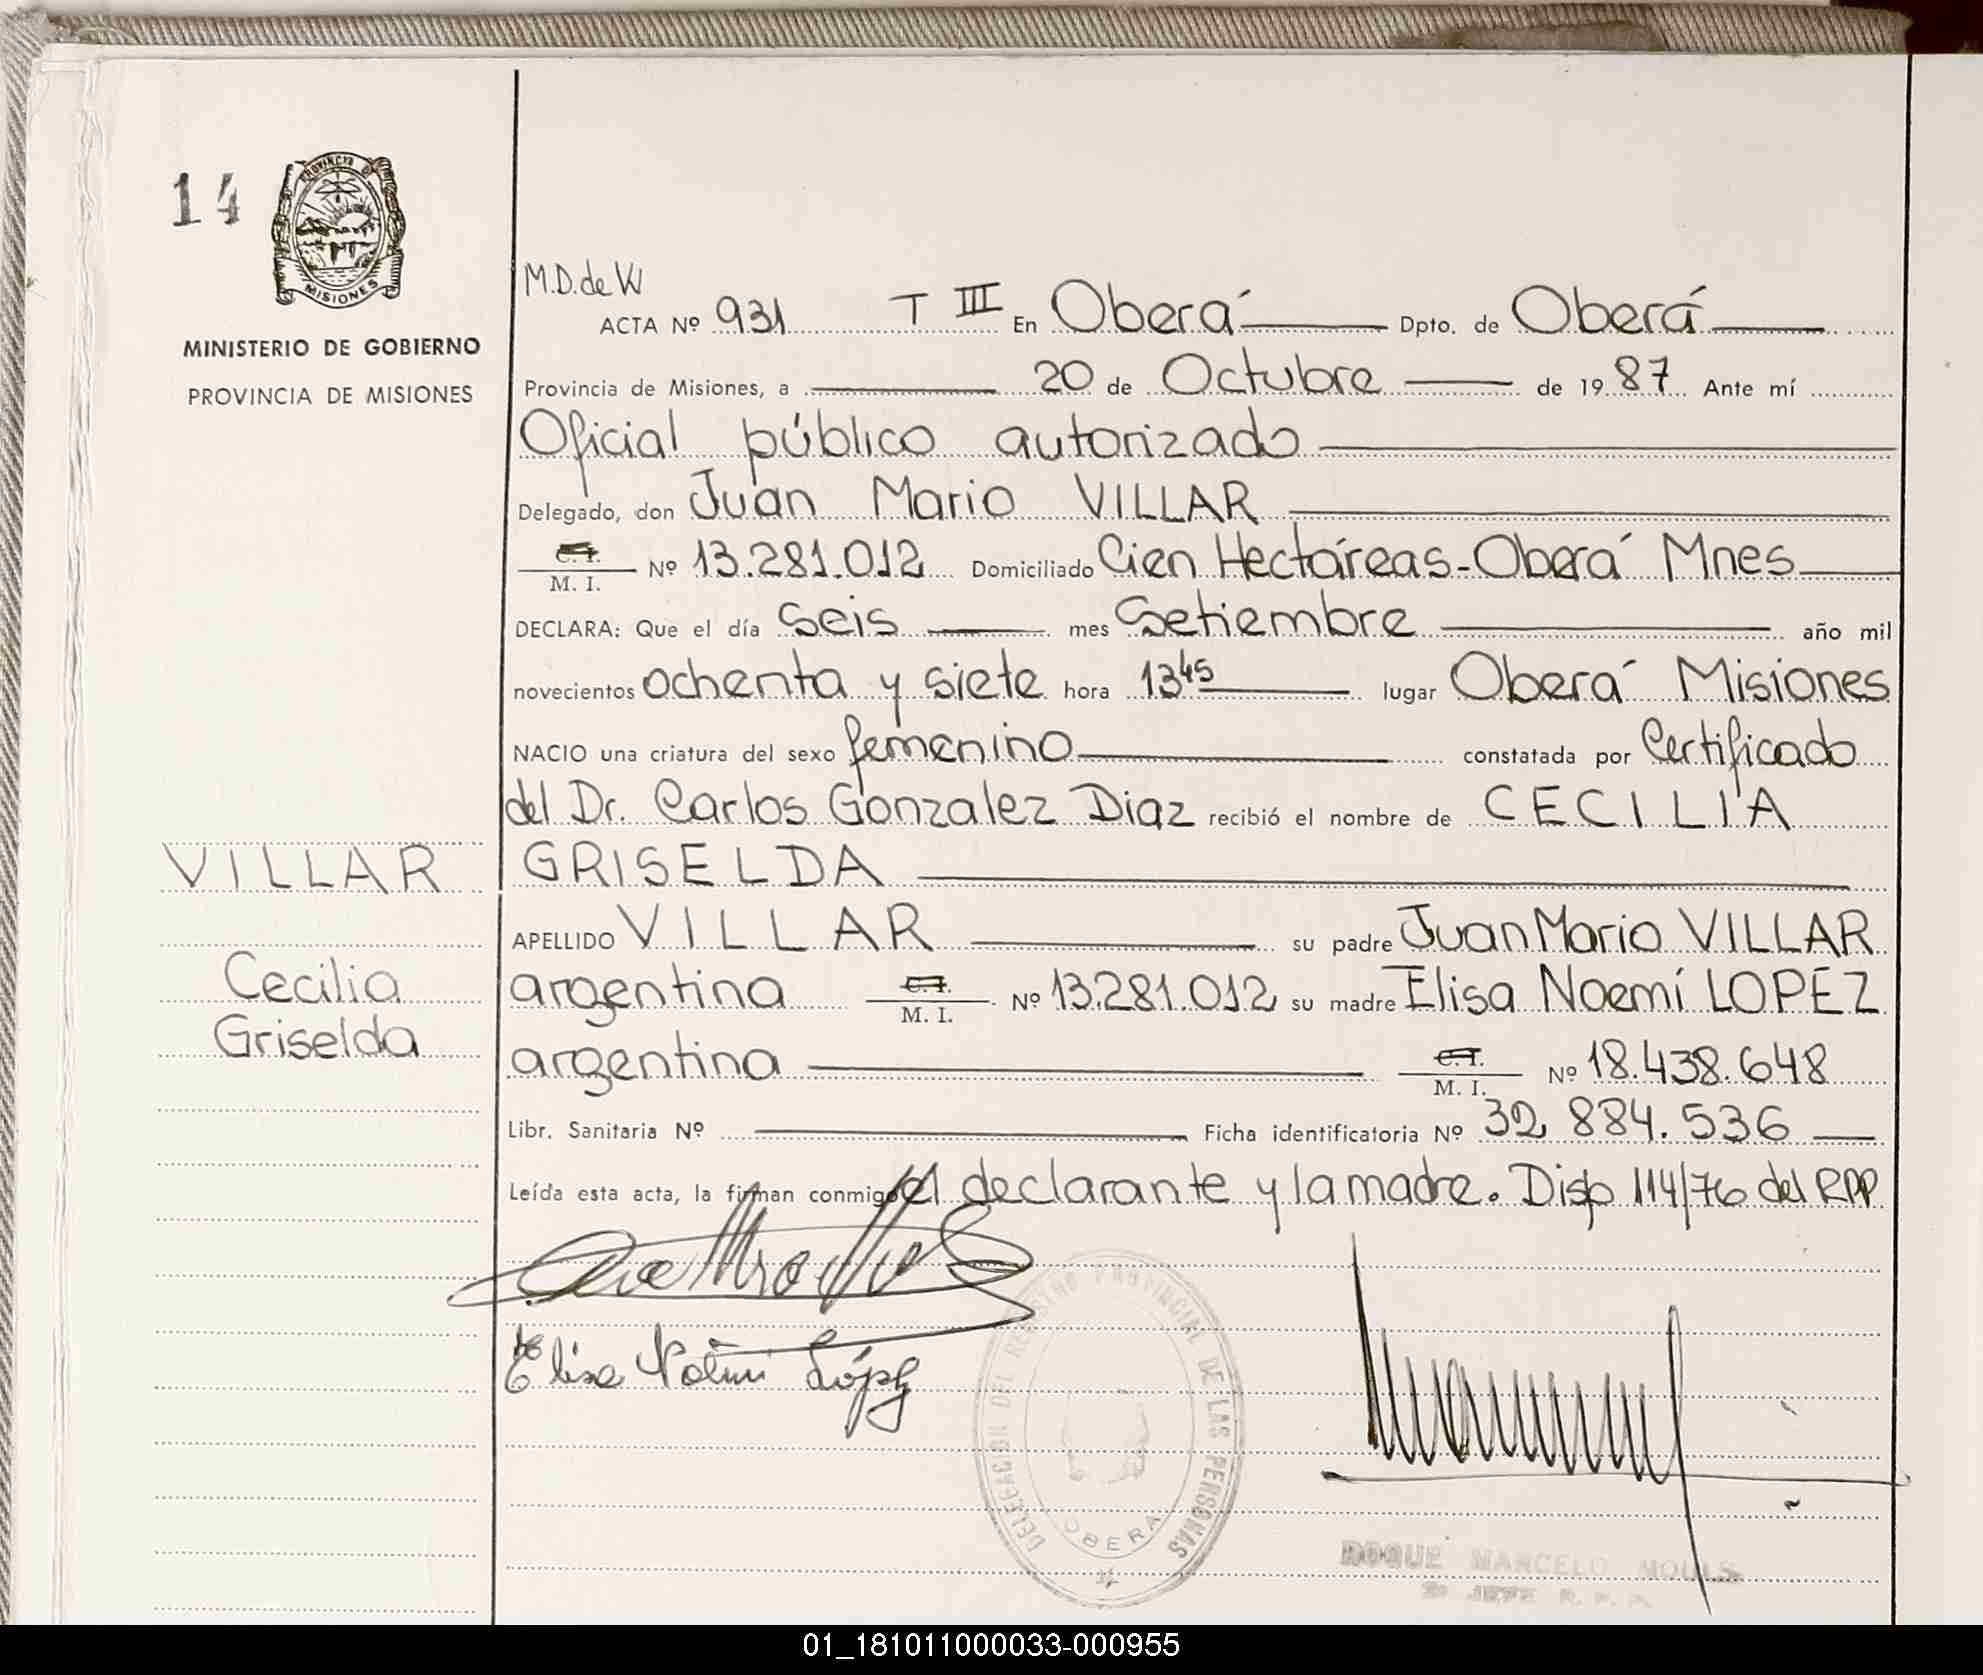 14
PROVINCIA DE
MISIONES
MINISTERIO DE GOBIERNO
PROVINCIA DE MISIONES
M.D. de W
ACTA Nº 931 T III En Oberá Dpto. de Oberá
Provincia de Misiones, a 20 de Octubre de 1987 Ante mí
Oficial público autorizado
Delegado, don Juan Mario VILLAR
C. I.
M. I. Nº 13.281.012 Domiciliado Cien Hectáreas-Oberá Mnes
DECLARA: Que el día seis mes Setiembre año mil
novecientos ochenta y siete hora 13 45 lugar Oberá Misiones
NACIO una criatura del sexo femenino constatada por Certificado
del Dr. Carlos Gonzalez Diaz recibió el nombre de CECILIA
VILLAR GRISELDA
APELLIDO VILLAR su padre Juan Mario VILLAR
Cecilia argentina C. I. M. I. Nº 13.281.012 su madre Elisa Noemí LOPEZ
Griselda argentina C. I. M. I. Nº 18.438.648
Libr. Sanitaria Nº Ficha identificatoria Nº 32 884.536
Leída esta acta, la firman conmigo el declarante y la madre. Disp 114/76 del RPP
Elisa Noemi López
DELEGACION DEL REGISTRO PROVINCIAL DE LAS PERSONAS
OBERA
ROQUE MARCELO
JEFE R. P. P.
01_181011000033-000955